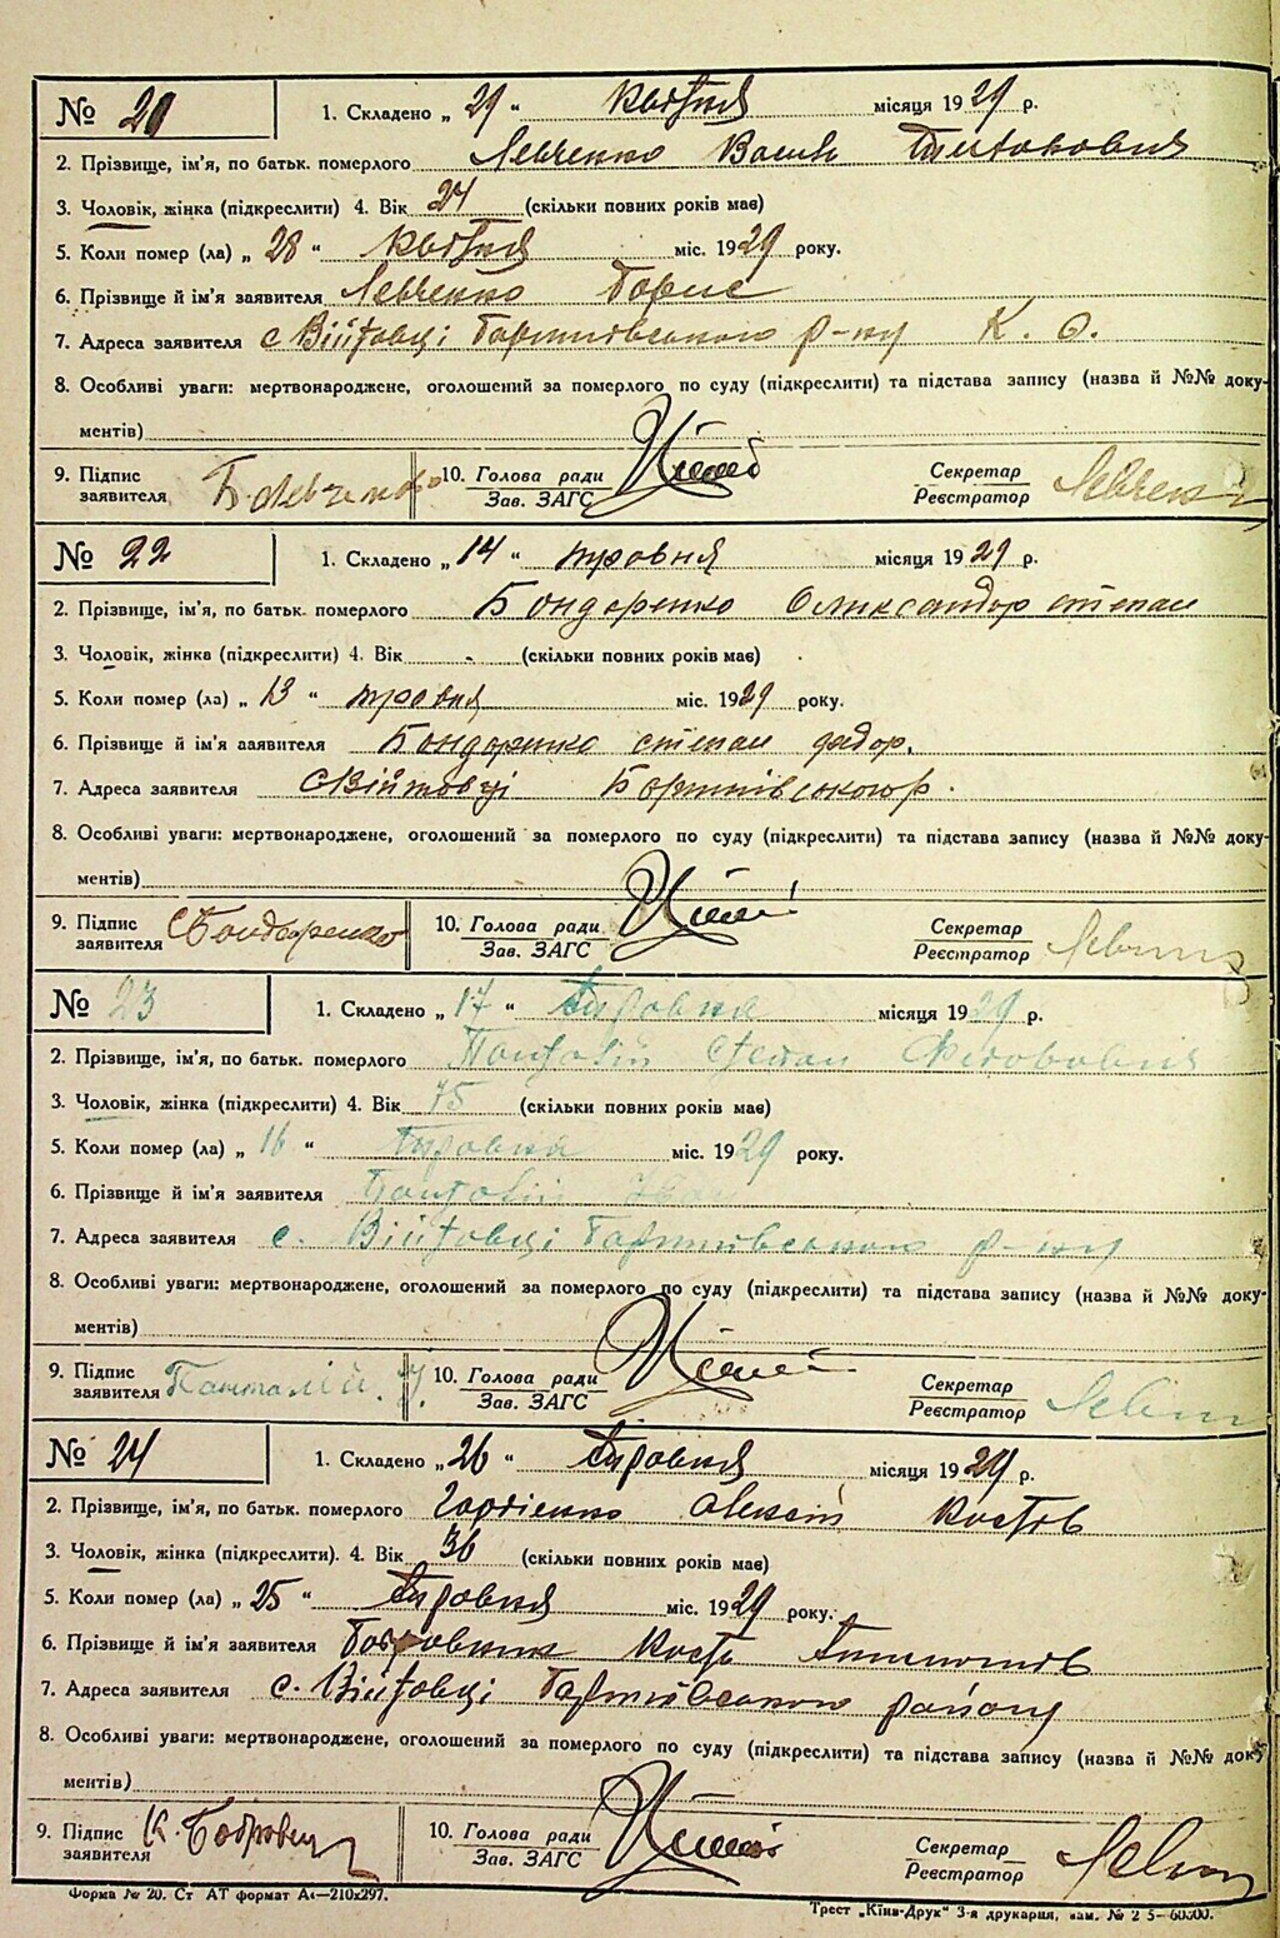 № 21 1. Складено „ 29 “ квітня місяця 1929 р.
2. Прізвище, ім'я, по батьк. померлого Левченко Василь
3. Чоловік, жінка (підкреслити) 4. Вік 24 (скільки повних років має)
5. Коли помер (ла) „ 28 “ квітня міс. 1929 року.
6. Прізвище й ім'я заявителя Левченко Борис
7. Адреса заявителя с Війтовці Баришівського р-ну К. О.
8. Особливі уваги: мертвонароджене, оголошений за померлого по суду (підкреслити) та підстава запису (назва й №№ доку-
ментів)
9. Підпис заявителя Б. Левченко 10. Голова ради Зав. ЗАГС Секретар Реєстратор Левченк
№ 22 1. Складено „ 14 “ травня місяця 1929 р.
2. Прізвище, ім'я, по батьк. померлого Бондаренко Оликсандор степан
3. Чоловік, жінка (підкреслити) 4. Вік - (скільки повних років має)
5. Коли помер (ла) „ 13 “ травня міс. 1929 року.
6. Прізвище й ім'я заявителя Бондаренко степан федор.
7. Адреса заявителя с Війтовці Баришівськогор.
8. Особливі уваги: мертвонароджене, оголошений за померлого по суду (підкреслити) та підстава запису (назва й №№ доку-
ментів)
9. Підпис заявителя С Бондаренко 10. Голова ради Зав. ЗАГС Секретар Реєстратор
№ 23 1. Складено „ 17 “ травня місяця 1929 р.
2. Прізвище, ім'я, по батьк. померлого Панталій Степан Федорович
3. Чоловік, жінка (підкреслити) 4. Вік 75 (скільки повних років має)
5. Коли помер (ла) „ 16 “ травня міс. 1929 року.
6. Прізвище й ім'я заявителя Панталій Іван
7. Адреса заявителя с. Війтовці Баришівського р-ну
8. Особливі уваги: мертвонароджене, оголошений за померлого по суду (підкреслити) та підстава запису (назва й №№ доку-
ментів)
9. Підпис заявителя Панталій. І. 10. Голова ради Зав. ЗАГС Секретар Реєстратор
№ 24 1. Складено „ 26 “ травня місяця 1929 р.
2. Прізвище, ім'я, по батьк. померлого Гордієнко Олексій Костів
3. Чоловік, жінка (підкреслити). 4. Вік 36 (скільки повних років має)
5. Коли помер (ла) „ 25 “ травня міс. 1929 року.
6. Прізвище й ім'я заявителя Бобровник Кость
7. Адреса заявителя с. Війтовці Баришівського району
8. Особливі уваги: мертвонароджене, оголошений за померлого по суду (підкреслити) та підстава запису (назва й №№ доку-
ментів)
9. Підпис заявителя К. Бобровн 10. Голова ради Зав. ЗАГС Секретар Реєстратор
Форма № 20. Ст АТ формат А4—210x297.
Трест „Київ-Друк“ 3-я друкарня, зам. № 2 5—60300.